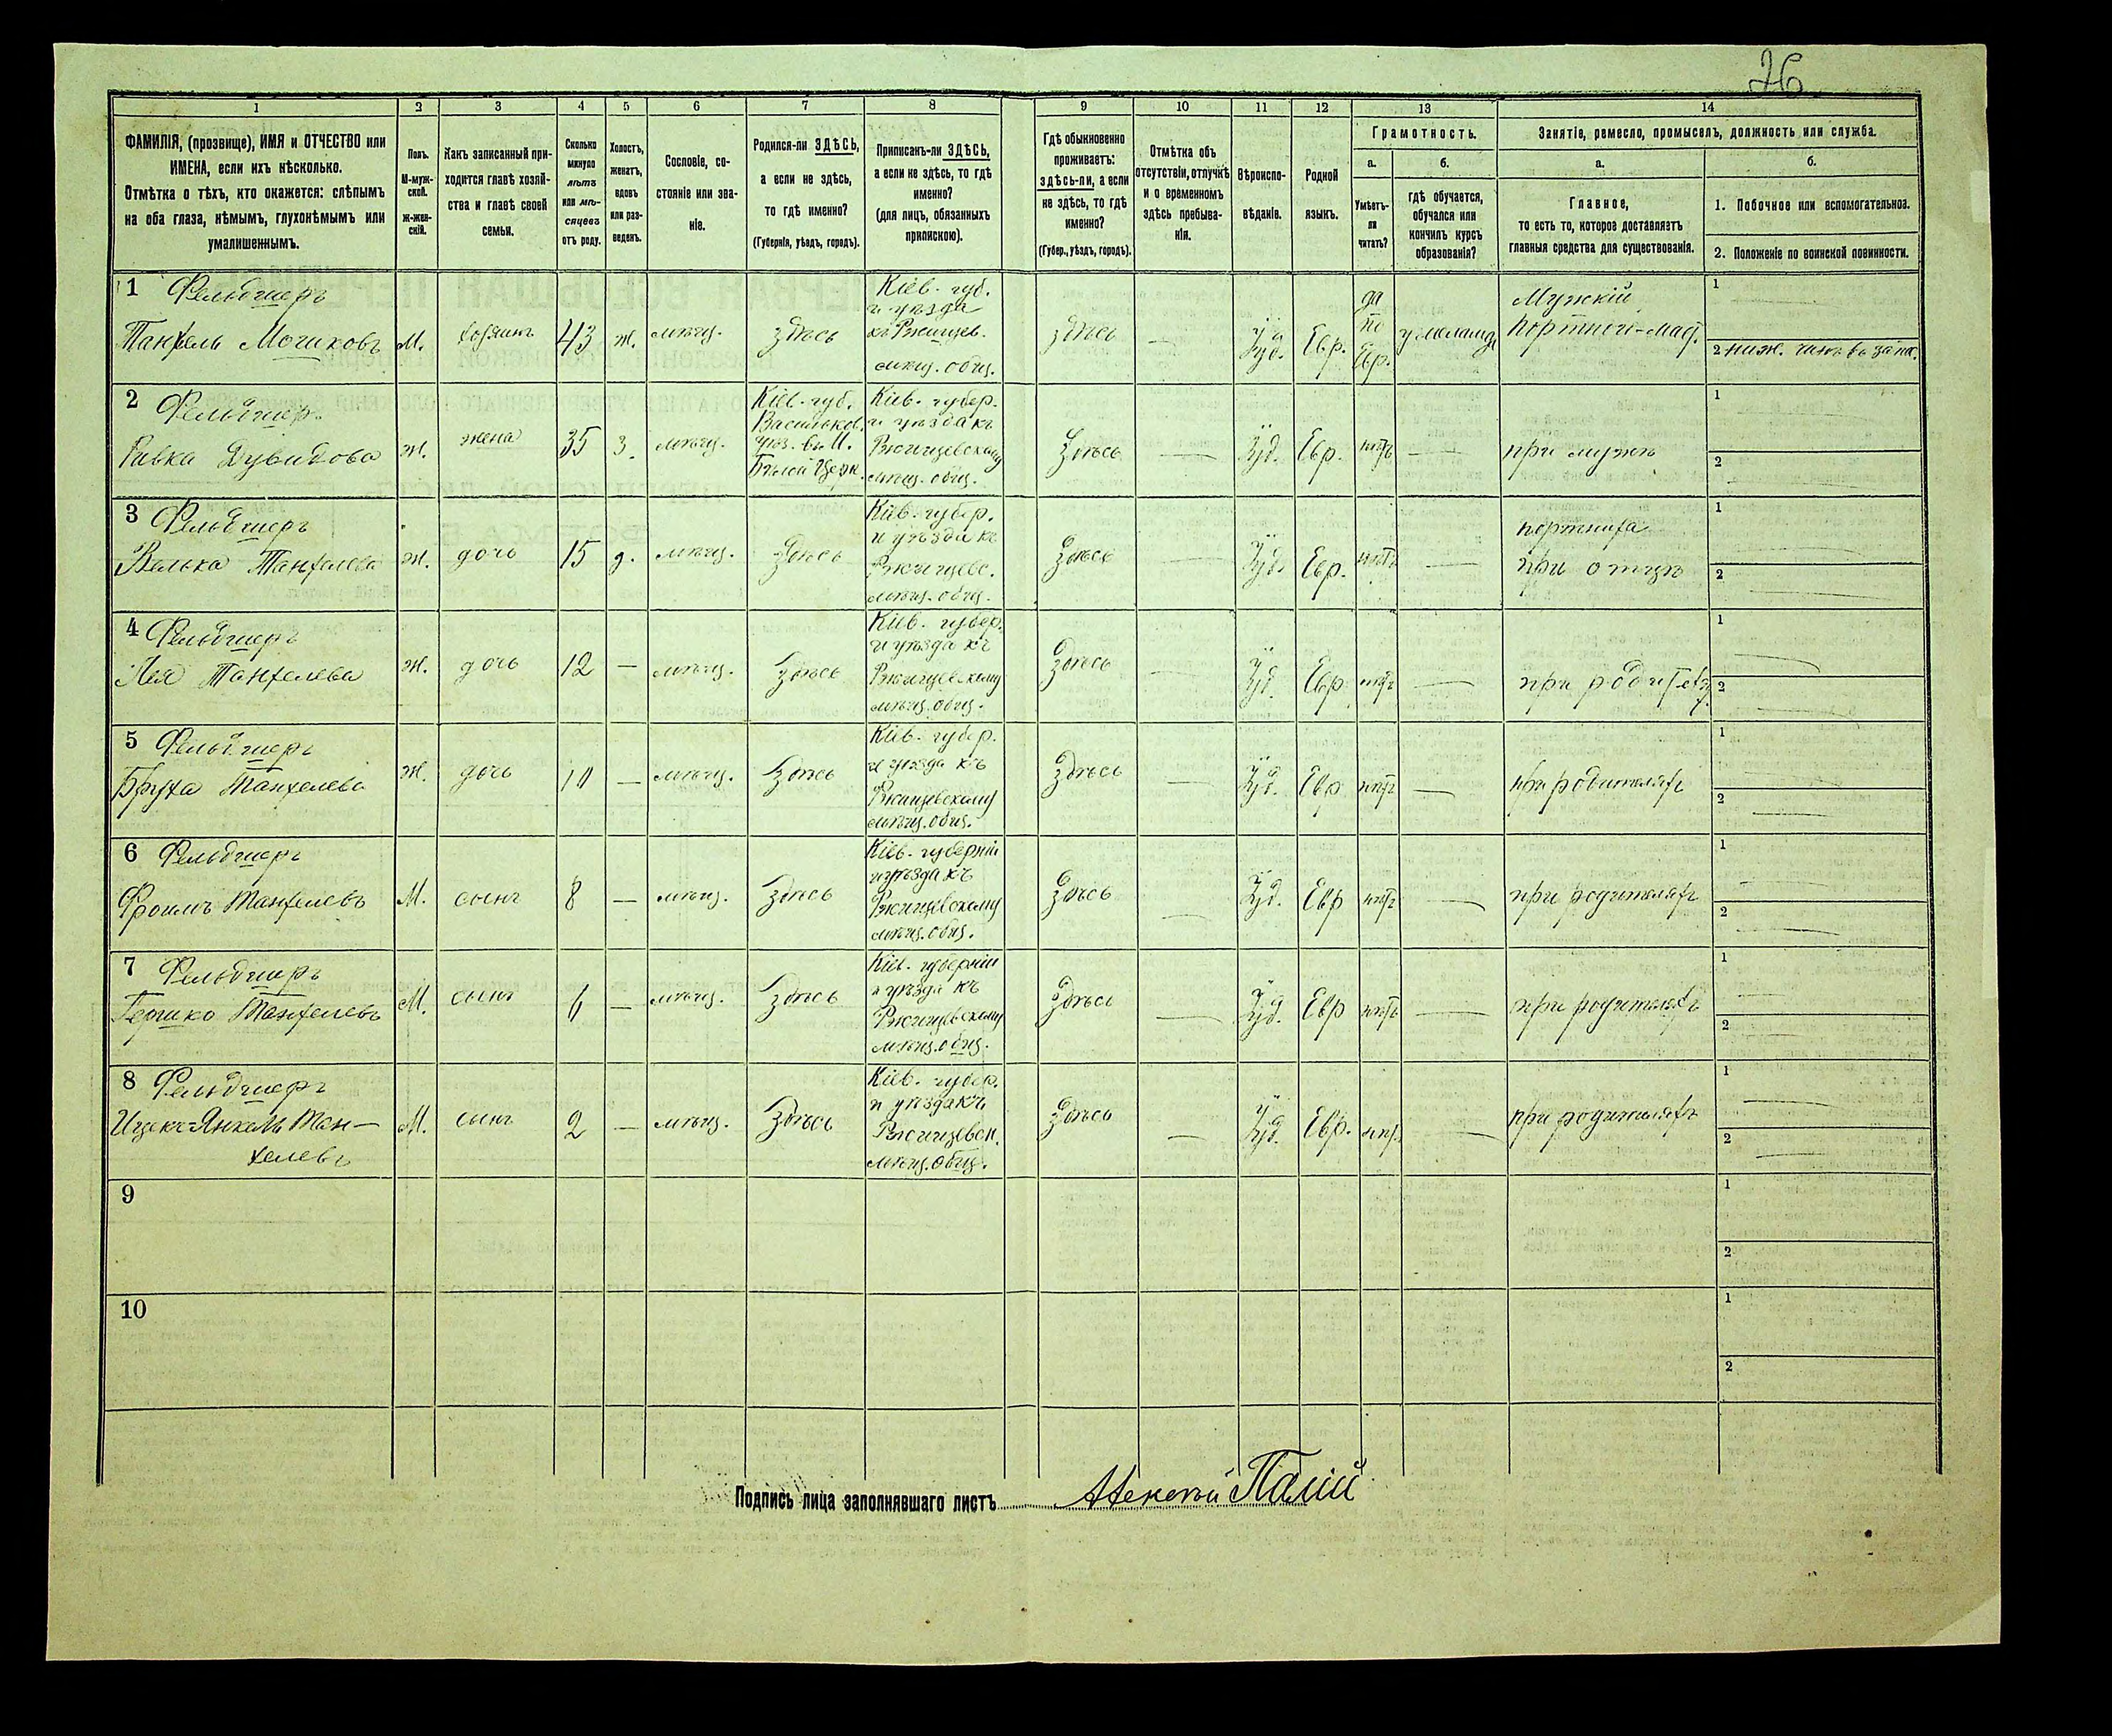 26
1 2 3 4 5 6 7 8 9 10 11 12 13 14
ФАМИЛІЯ, (прозвище), ИМЯ и ОТЧЕСТВО или
ИМЕНА, если ихъ нѣсколько.
Отмѣтка о тѣхъ, кто окажется: слѣпымъ
на оба глаза, нѣмымъ, глухонѣмымъ или
умалишеннымъ.
Полъ.
М-муж-
ской.
Ж-жен-
скій.
Какъ записанный при-
ходится главѣ хозяй-
ства и главѣ своей
семьи.
Сколько
минуло
лѣтъ
или мѣ-
сяцевъ
отъ роду.
Холостъ,
женатъ,
вдовъ
или раз-
веденъ.
Сословіе, со-
стояніе или зва-
ніе.
Родился-ли ЗДѢСЬ,
а если не здѣсь,
то гдѣ именно?
(Губернія, уѣздъ, городъ).
Приписанъ-ли ЗДѢСЬ,
а если не здѣсь, то гдѣ
именно?
(для лицъ, обязанныхъ
припискою).
Гдѣ обыкновенно
проживаетъ:
здѣсь-ли, а если
не здѣсь, то гдѣ
именно?
(Губер., уѣздъ, городъ).
Отмѣтка объ
отсутствіи, отлучкѣ
и о временномъ
здѣсь пребыва-
ніи.
Вѣроиспо-
вѣданіе.
Родной
языкъ.
Грамотность.
а.
Умѣетъ-
ли
читать?
б.
гдѣ обучается,
обучался или
кончилъ курсъ
образованія?
Занятіе, ремесло, промыселъ, должность или служба.
а.
Главное,
то есть то, которое доставляетъ
главныя средства для существованія.
б.
1. Побочное или вспомогательное.
2. Положеніе по воинской повинности.
1 Фельдшеръ
Танхель Мошковъ
М.
хозяинъ
43
ж.
мѣщ.
здѣсь
Кіев. губ.
и уѣзда
къ Ржищев.
мѣщ. общ.
здѣсь
—
Іуд.
Евр.
да
по
Евр.
у меламда
Мужскій
портной-маст.
1
2 ниж. чинъ въ запас.
2 Фельдшер.
Ривка Дувидова
ж.
жена
35
з.
мѣщ.
Кіев. губ.
Васильков.
уѣз. въ М.
Бѣлой Церк.
Кіев. губер.
и уѣзда къ
Ржищевскому
мѣщ. общ.
Здѣсь
—
Іуд.
Евр.
нѣтъ
—
при мужѣ
1
2
3 Фельдшеръ
Велька Танхелева
ж.
дочь
15
д.
мѣщ.
Здѣсь
Кіев. губер.
и уѣзда къ
Ржищевс.
мѣщ. общ.
Здѣсь
—
Іуд.
Евр.
нѣтъ
—
портниха
при отцѣ
1
2
4 Фельдшеръ
Лея Танхелева
ж.
дочь
12
—
мѣщ.
Здѣсь
Кіев. губер.
и уѣзда къ
Ржищевскому
мѣщ. общ.
Здѣсь
—
Іуд.
Евр
нѣтъ
—
при родителях
1
2
5 Фельдшеръ
Бруха Танхелева
ж.
дочь
10
—
мѣщ.
Здѣсь
Кіев. губер.
и уѣзда къ
Ржищевскому
мѣщ. общ.
Здѣсь
—
Іуд.
Евр
нѣтъ
—
при родителяхъ
1
2
6 Фельдшеръ
Фроимъ Танхелевъ
М.
сынъ
8
—
мѣщ.
Здѣсь
Кіев. губерніи
и уѣзда къ
Ржищевскому
мѣщ. общ.
Здѣсь
—
Іуд.
Евр
нѣтъ
—
при родителяхъ
1
2
7 Фельдшеръ
Гершко Танхелевъ
М.
сынъ
6
—
мѣщ.
Здѣсь
Кіев. губерніи
и уѣзда къ
Ржищевскому
мѣщ. общ.
Здѣсь
—
Іуд.
Евр
нѣтъ
—
при родителяхъ
1
2
8 Фельдшеръ
Ицекъ-Янкель Тан-
хелевъ
М.
сынъ
2
—
мѣщ.
Здѣсь
Кіев. губер.
и уѣзда къ
Ржищевск.
мѣщ. общ.
Здѣсь
—
Іуд.
Евр.
нѣт.
—
при родителяхъ
1
2
9
1
2
10
1
2
Подпись лица заполнявшаго листъ Алексѣй Палій